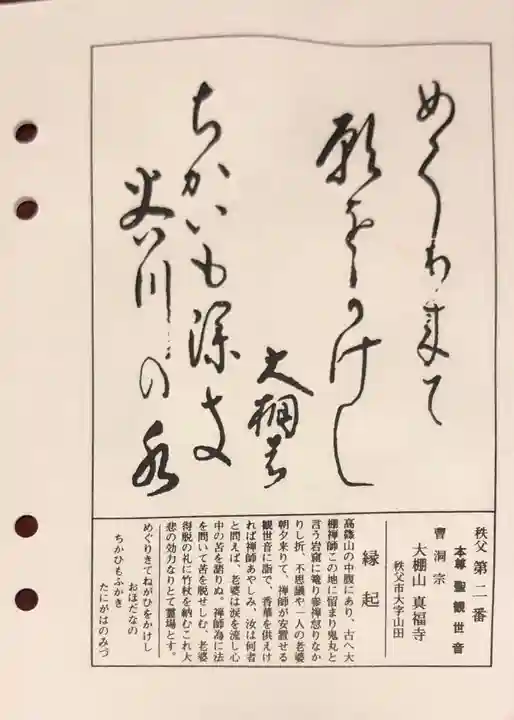 めぐり来て
願をかけし
大棚の
ちかいも深き
谷川の水
秩父 第二番
本尊 聖観世音
曹洞宗
大棚山 真福寺
秩父市大字山田
縁起
高篠山の中腹にあり、古へ大
棚禅師この地に留まり鬼丸と
言う岩窟に篭り参禅怠りなか
りし折、不思議や一人の老婆
朝夕来りて、禅師が安置せる
観世音に詣で、香華を供えけ
れば禅師あやしみ、汝は何者
と問えば、老婆は涙を流し心
中の苦を語りぬ。禅師為に法
を問いて苦を脱せしむ、老婆
得脱の礼に竹杖を納むこれ大
悲の効力なりとて霊場とす。
めぐりきてねがひをかけし
おほだなの
ちかひもふかき
たにがはのみづ